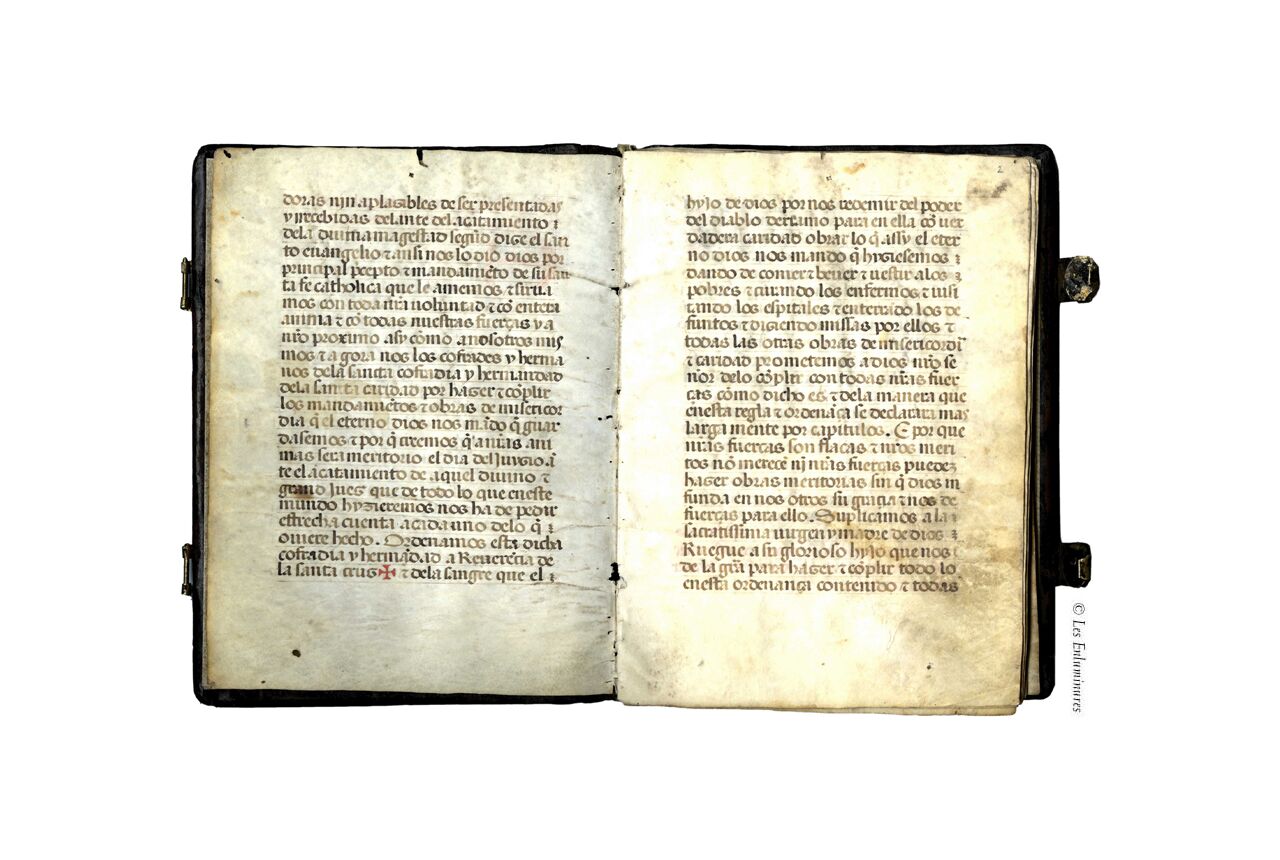 doras njn aplasibles de ser presentadas
y rrecebidas delante del acatamiento
dela diuina magestad segũd dize el san
to euangelio ⁊ ansi nos lo dio dios por
principal p̃cepto ⁊ mandamiẽto de su san
ta fe catholica que le amemos ⁊ sirua
mos con toda nr̃a voluntad ⁊ cõ entera
anima ⁊ cõ todas nuestras fuerças y a
nr̃o proximo asy como a nosotros mis
mos ⁊ agora nos los cofrades y herma
nos dela sancta cofradia y hermandad
dela santa caridad por hazer ⁊ cõplir
los mandamiẽtos ⁊ obras de misericor
dia q̃ el eterno dios nos mãdo q̃ guar
dasemos ⁊ por q̃ creemos q̃ a nr̃as ani
mas sera meritorio el dia del juyzio ã
te el acatamiento de aquel diuino ⁊
grand juez que de todo lo que eneste
mundo hyzieremos nos ha de pedir
estrecha cuenta a cada uno delo q̃
ouiere hecho. Ordenamos esta dicha
cofradia y hermãdad a Reuerencia de
la santa cruz ✠ ⁊ dela sangre que el
2
hyjo de dios por nos redemir del poder
del diablo derramo para en ella cõ uer
dadera caridad obrar lo q̃ assy el eter
no dios nos mando q̃ hyziesemos
dando de comer ⁊ beuer ⁊ uestir alos
pobres ⁊ curando los enfermos ⁊ uisi
tando los espitales ⁊ enterrãdo los de
funtos ⁊ diziendo missas por ellos ⁊
todas las otras obras de misericordi
⁊ caridad prometemos a dios nr̃o se
ñor delo cõplir con todas nr̃as fuer
ças como dicho es ⁊ dela manera que
enesta regla ⁊ ordenãça se declarara mas
larga mente por capitulos. E por que
nr̃as fuerças son flacas ⁊ nr̃os meri
tos nõ merecẽ nj nr̃as fuerças puedẽ
hazer obras meritorias sin q̃ dios in
funda en nos otros su gracia ⁊ nos de
fuerças para ello. Suplicamos a la
sacratissima uirgen y madre de dios
Ruegue a su glorioso hyjo que nos
de la grã̃ para hazer ⁊ cõplir todo lo
enesta ordenança contenido ⁊ todas
© Les Enluminures